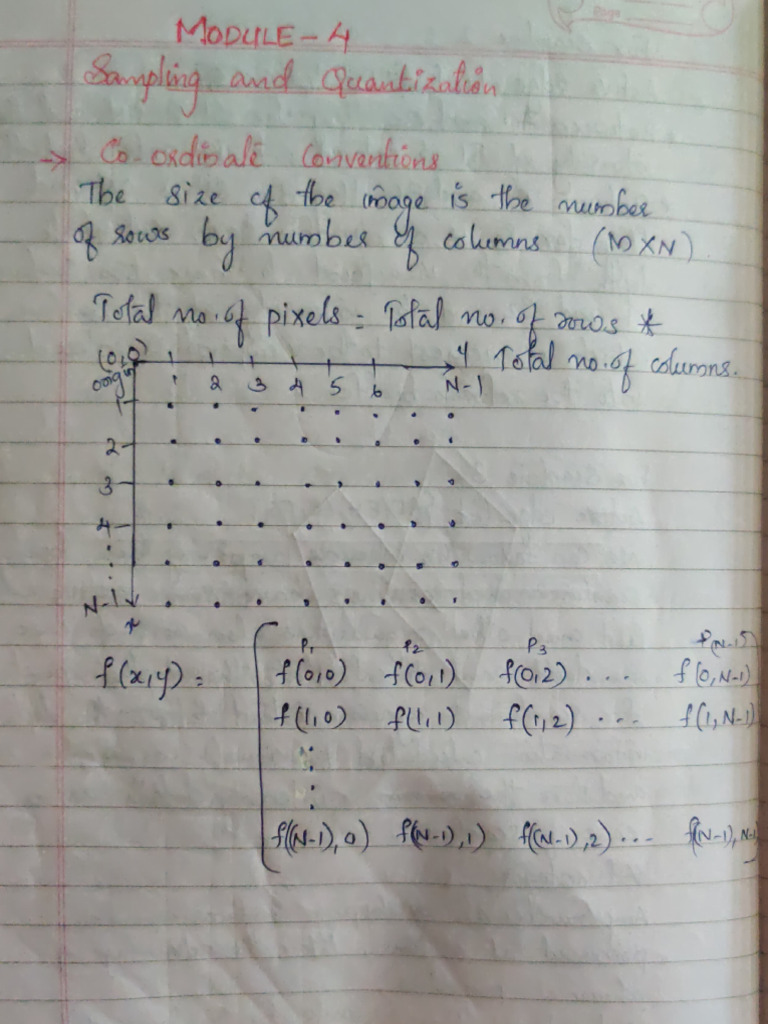 MODULE-4
Sampling and Quantization
→ Co ordinate Conventions
The size of the image is the number
of rows by number of columns (MXN)
Total no. of pixels = Total no. of rows *
Total no. of columns.
(0,0) y
origin 1 2 3 4 5 6 N-1
1
2
3
4
N-1
x
P1 P2 P3 P(N-1)
f(x,y) = f(0,0) f(0,1) f(0,2) ... f(0,N-1)
f(1,0) f(1,1) f(1,2) ... f(1,N-1)
f((N-1),0) f(N-1),1) f((N-1),2) ... f(N-1),N-1